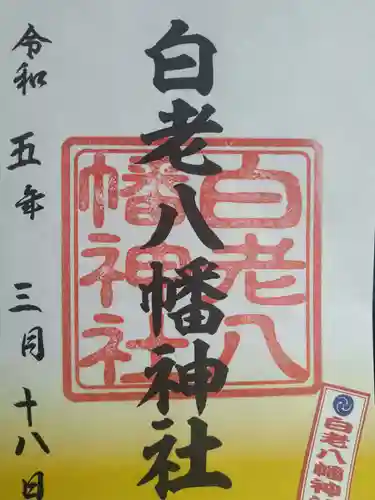 白老八幡神社
令和五年三月十八日
白老八幡神社
白老八幡神